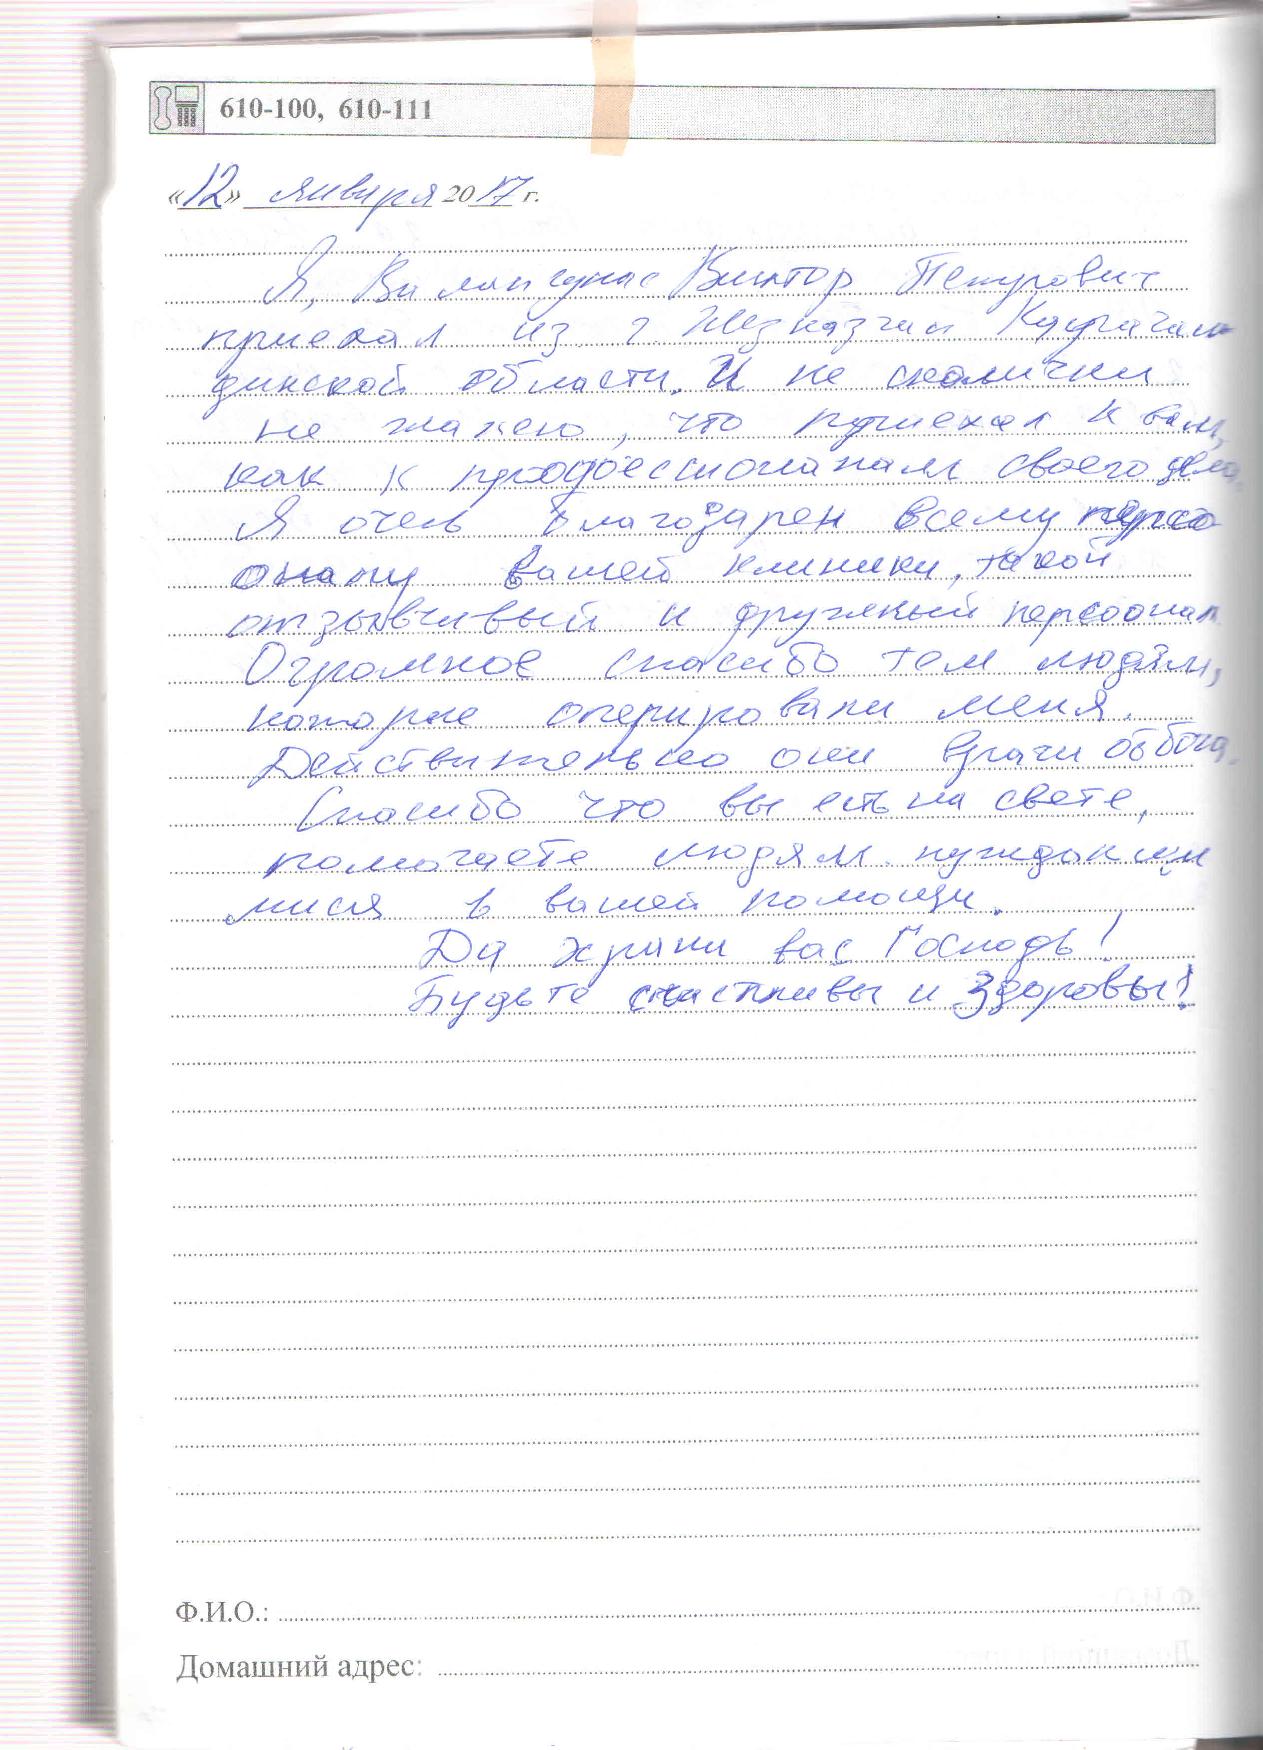 610-100, 610-111
«12» января 2017 г.
Я, Виктор Петрович
приехал из г. Жезказган Караган
динской области. И не сколички
не жалею, что приехал к вам,
как к профессионалам своего дела.
Я очень благодарен всему персо
оналу вашей клиники, такой
отзывчивый и дружный персоонал
Огромное спасибо тем людям,
которые оперировали меня.
Действительно они врачи от бога.
Спасибо что вы есть на свете,
помогаете людям нуждающи
мися в вашей помощи.
Да храни вас Господь!
Будьте счастливы и здоровы!
Ф.И.О.:
Домашний адрес: